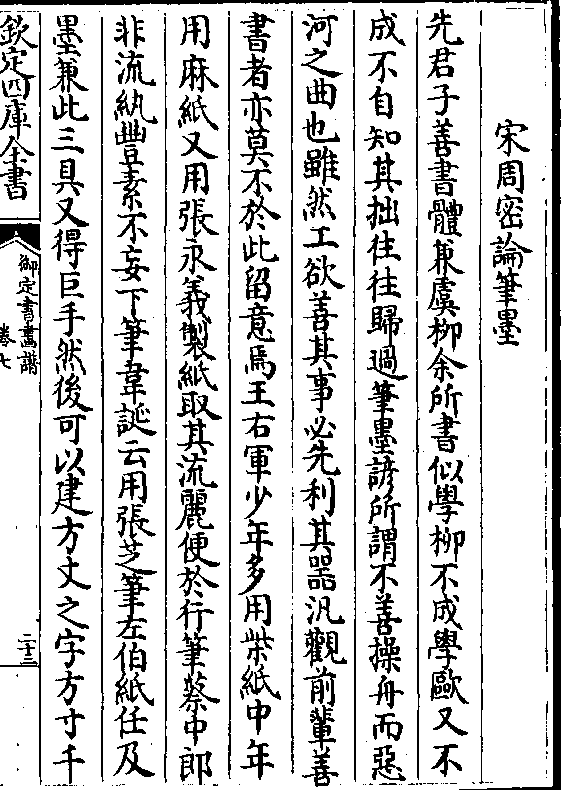 宋周密論筆墨
先君子善書體兼虞柳余所書似學柳不成學歐又不
成不自知其拙往往歸過筆墨諺所謂不善操舟而惡
河之曲也雖然工欲善其事必先利其器汎觀前輩善
書者亦莫不於此留意焉王右軍少年多用紫紙中年
用麻紙又用張永義製紙取其流麗便於行筆蔡中郎
非流紈豐素不妄下筆韋誕云用張芝筆左伯紙任及
墨兼此三具又得巨手然後可以建方丈之字方寸千
欽定四庫全書
御定書畫譜
卷七
二十三